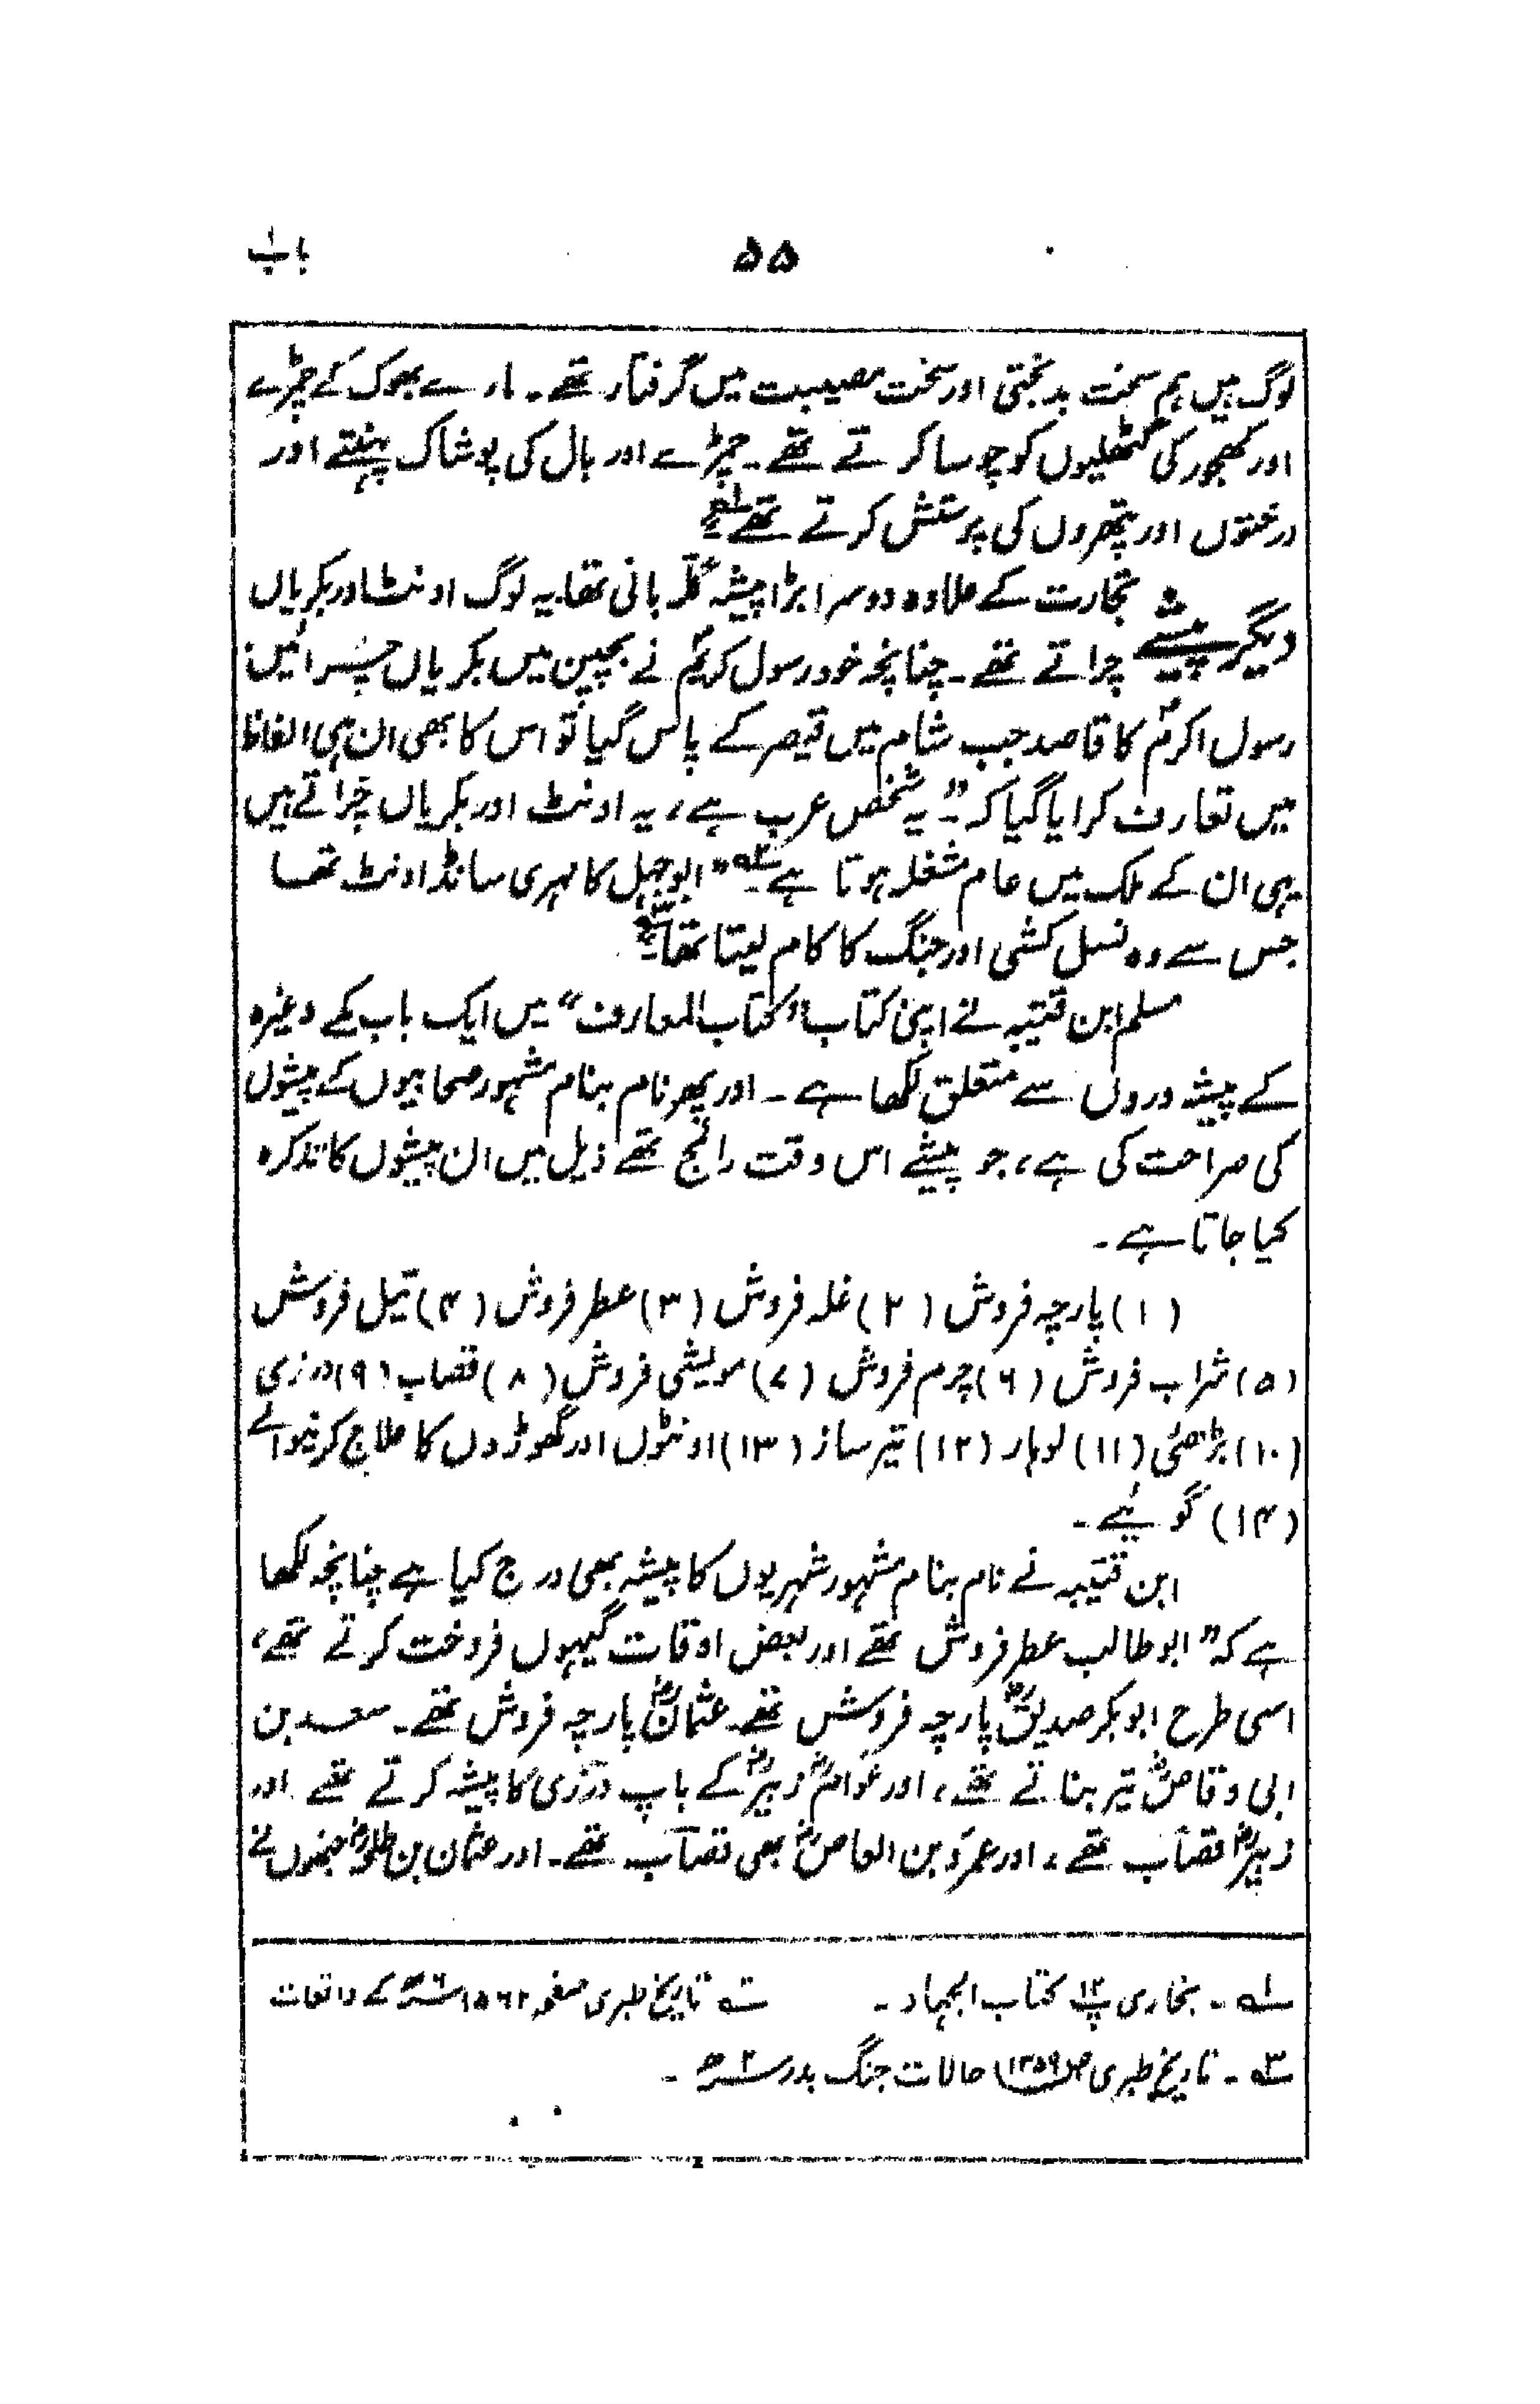 باب ۱
۵۵
لوگ ہیں ہم سخت بدبختی اور سخت مصیبت میں گرفتار تھے۔ مارے بھوک کے چمڑے
اور کھجور کی گٹھلیوں کو چوسا کرتے تھے۔ چمڑے اور بال کی پوشاک پہنتے اور
درختوں اور پتھروں کی پرستش کرتے تھے
دیگر پیشے
تجارت کے علاوہ دوسرا بڑا پیشہ گلّہ بانی تھا یہ لوگ اونٹ اور بکریاں
چراتے تھے۔ چنانچہ خود رسول کریمؐ نے بچپن میں بکریاں چرائیں
رسول اکرمؐ کا قاصد جب شام میں قیصر کے پاس گیا تو اس کا بھی ان ہی الفاظ
میں تعارف کرایا گیا کہ ”یہ شخص عرب ہے، یہ اونٹ اور بکریاں چراتے ہیں
یہی ان کے ملک میں عام مشغلہ ہوتا ہے“ ابوجہل کا مہری سانڈ اونٹ تھا
جس سے وہ نسل کشی اور جنگ کا کام لیتا تھا
مسلم ابن قتیبہ نے اپنی کتاب ”کتاب المعارف“ میں ایک باب مکے وغیرہ
کے پیشہ وروں سے متعلق لکھا ہے۔ اور پھر نام بنام مشہور صحابیوں کے پیشوں
کی صراحت کی ہے، جو پیشے اس وقت رائج تھے ذیل میں ان پیشوں کا تذکرہ
کیا جاتا ہے۔
(۱) پارچہ فروش (۲) غلہ فروش (۳) عطر فروش (۴) تیل فروش
(۵) شراب فروش (۶) چرم فروش (۷) مویشی فروش (۸) قصاب (۹) درزی
(۱۰) بڑھئی (۱۱) لوہار (۱۲) تیر ساز (۱۳) اونٹوں اور گھوڑوں کا علاج کرنیوالے
(۱۴) گوئیے۔
ابن قتیبہ نے نام بنام مشہور شہریوں کا پیشہ بھی درج کیا ہے چنانچہ لکھا
ہے کہ ”ابو طالب عطر فروش تھے اور بعض اوقات گیہوں فروخت کرتے تھے،
اسی طرح ابوبکر صدیقؓ پارچہ فروش تھے۔ عثمانؓ پارچہ فروش تھے۔ سعد بن
ابی وقاصؓ تیر بناتے تھے، اور عوامؓ زبیرؓ کے باپ درزی کا پیشہ کرتے تھے اور
زبیرؓ قصاب تھے، اور عمرو بن العاصؓ بھی قصاب تھے۔ اور عثمان بن طلحہؓ جنھوں نے
۱ـ۔ بخاری پ ۱۲ کتاب الجہاد۔ ۲ـ تاریخ طبری صفحہ ۱۵۶۲ ۶ھ کے واقعات
۳ـ۔ تاریخ طبری ص ۱۳۵۹ حالات جنگ بدر ۲ھ۔